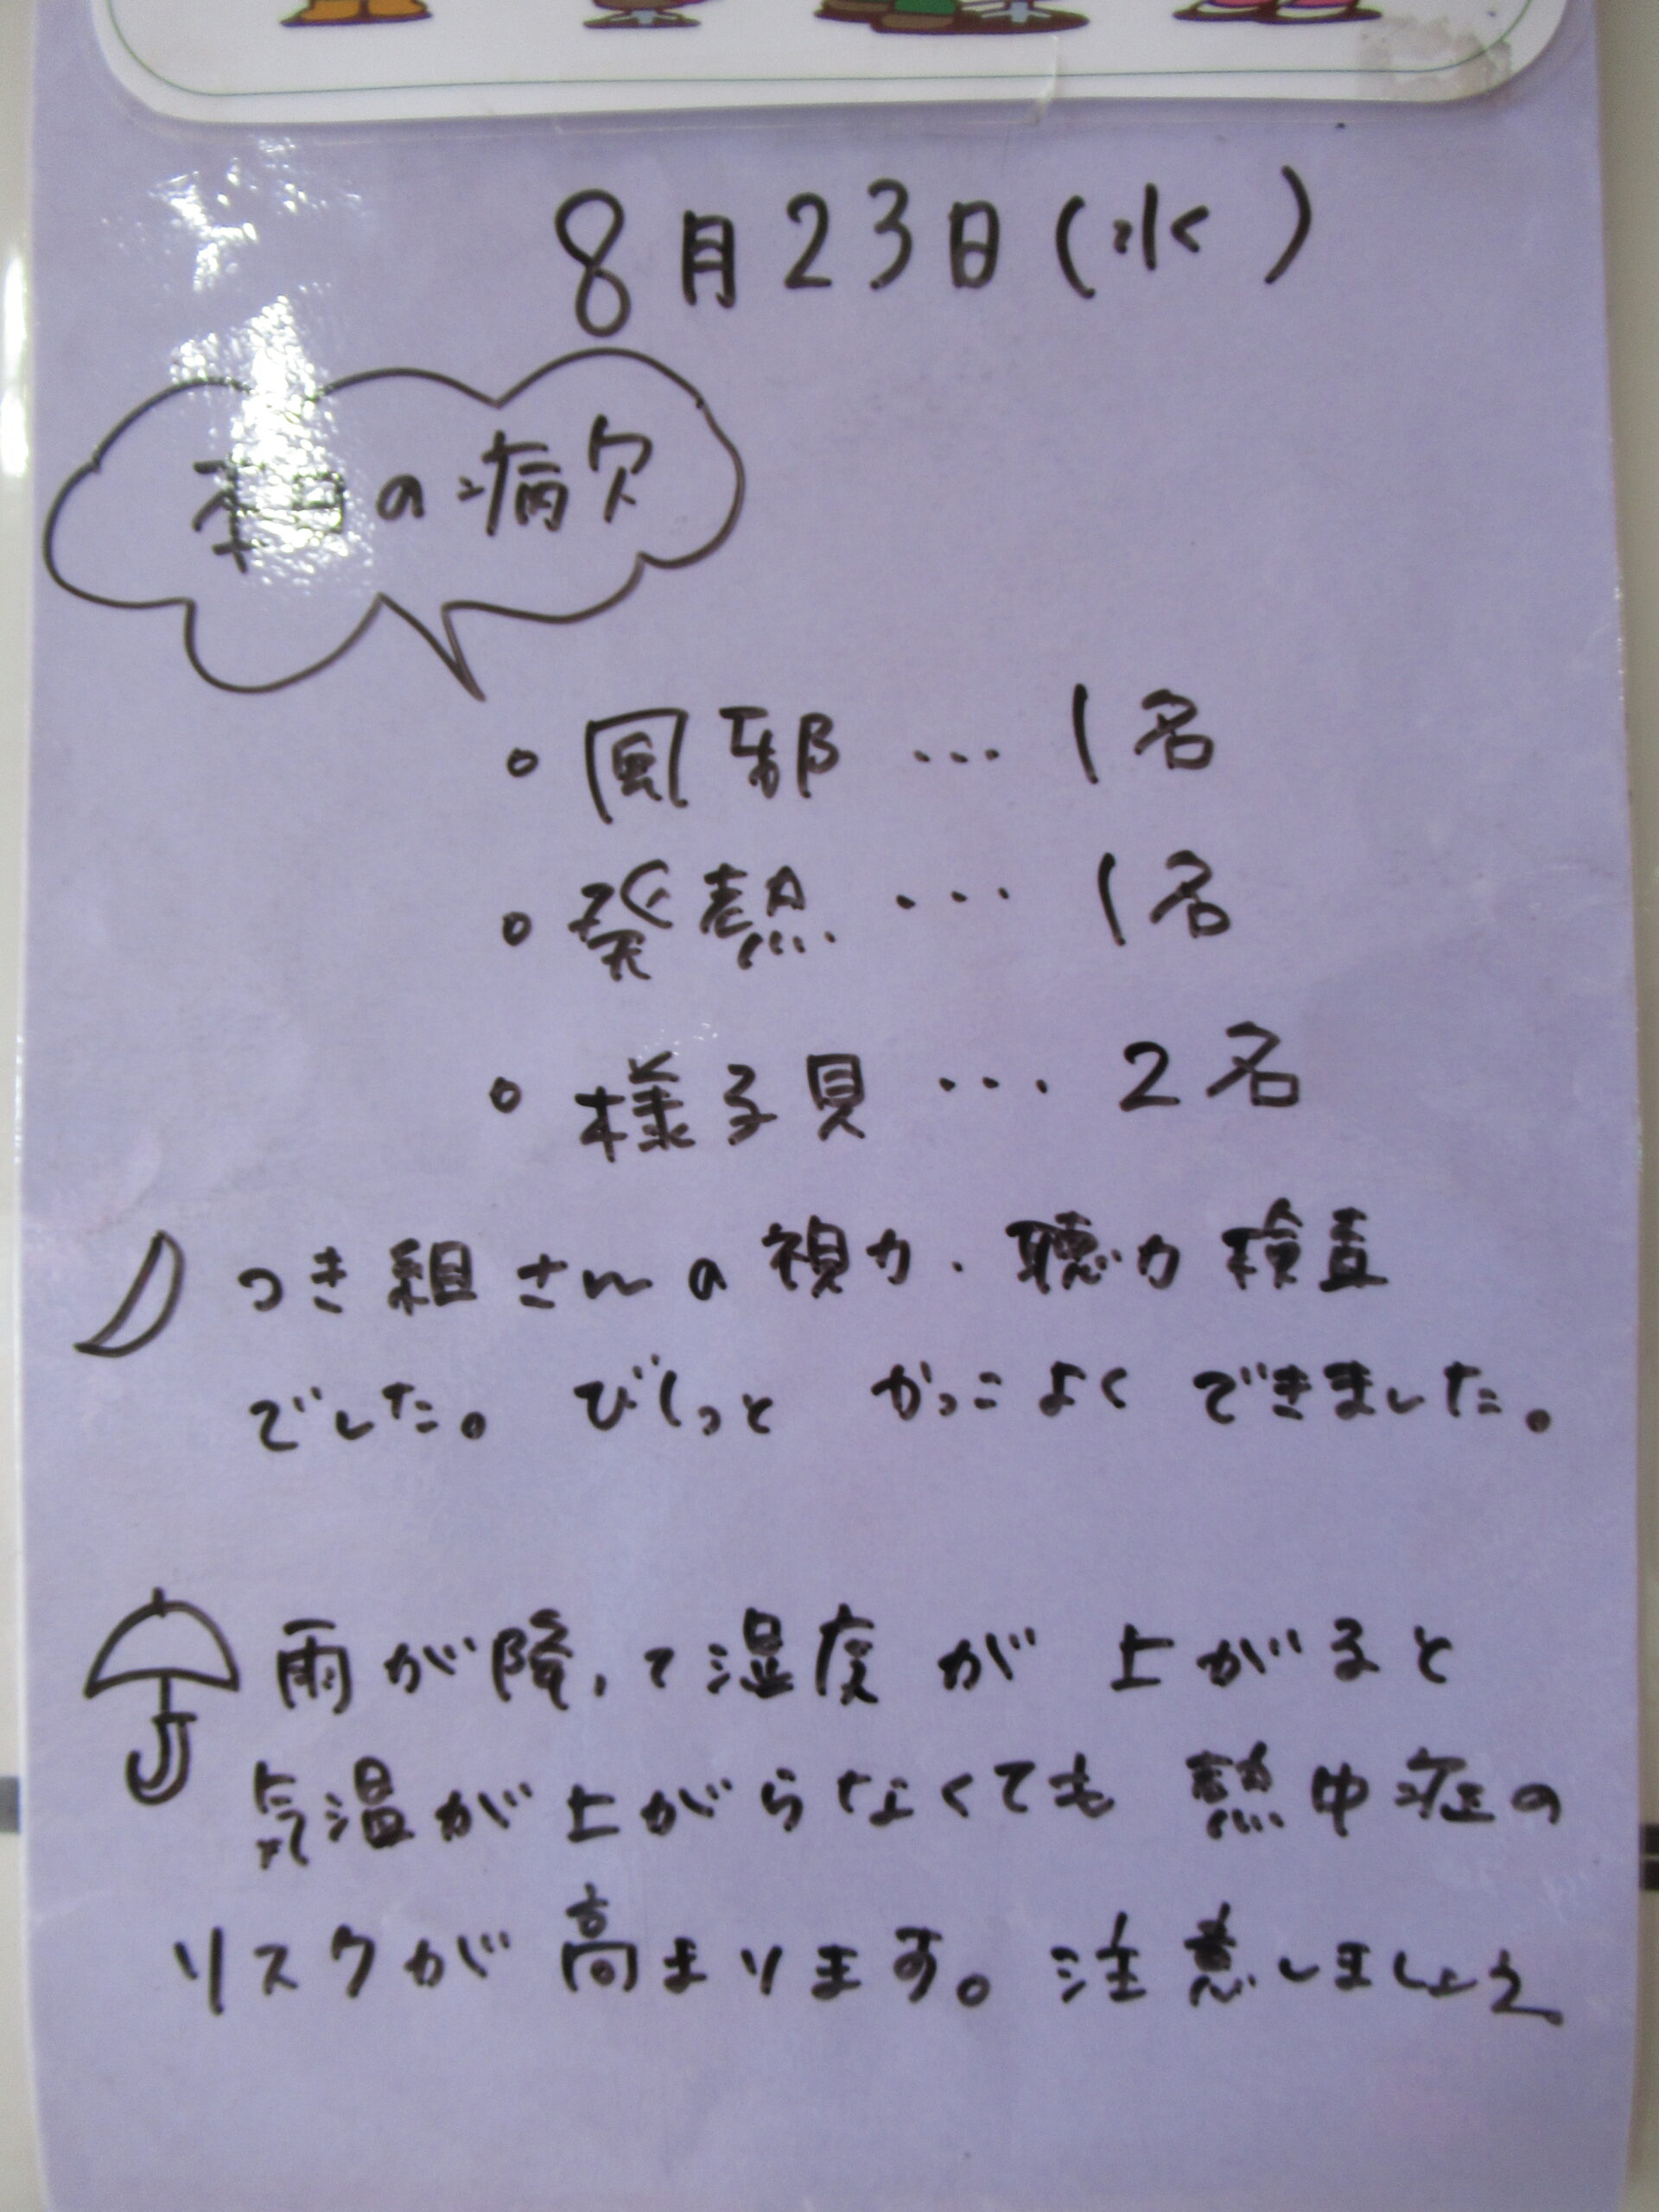 8月23日(水)
本日の病欠
。風邪 … 1名
。発熱 … 1名
。様子見 … 2名
つき組さんの視力・聴力検査
でした。びしっと かっこよく できました。
雨が降って湿度が上がると
気温が上がらなくても 熱中症の
リスクが高まります。注意しましょう